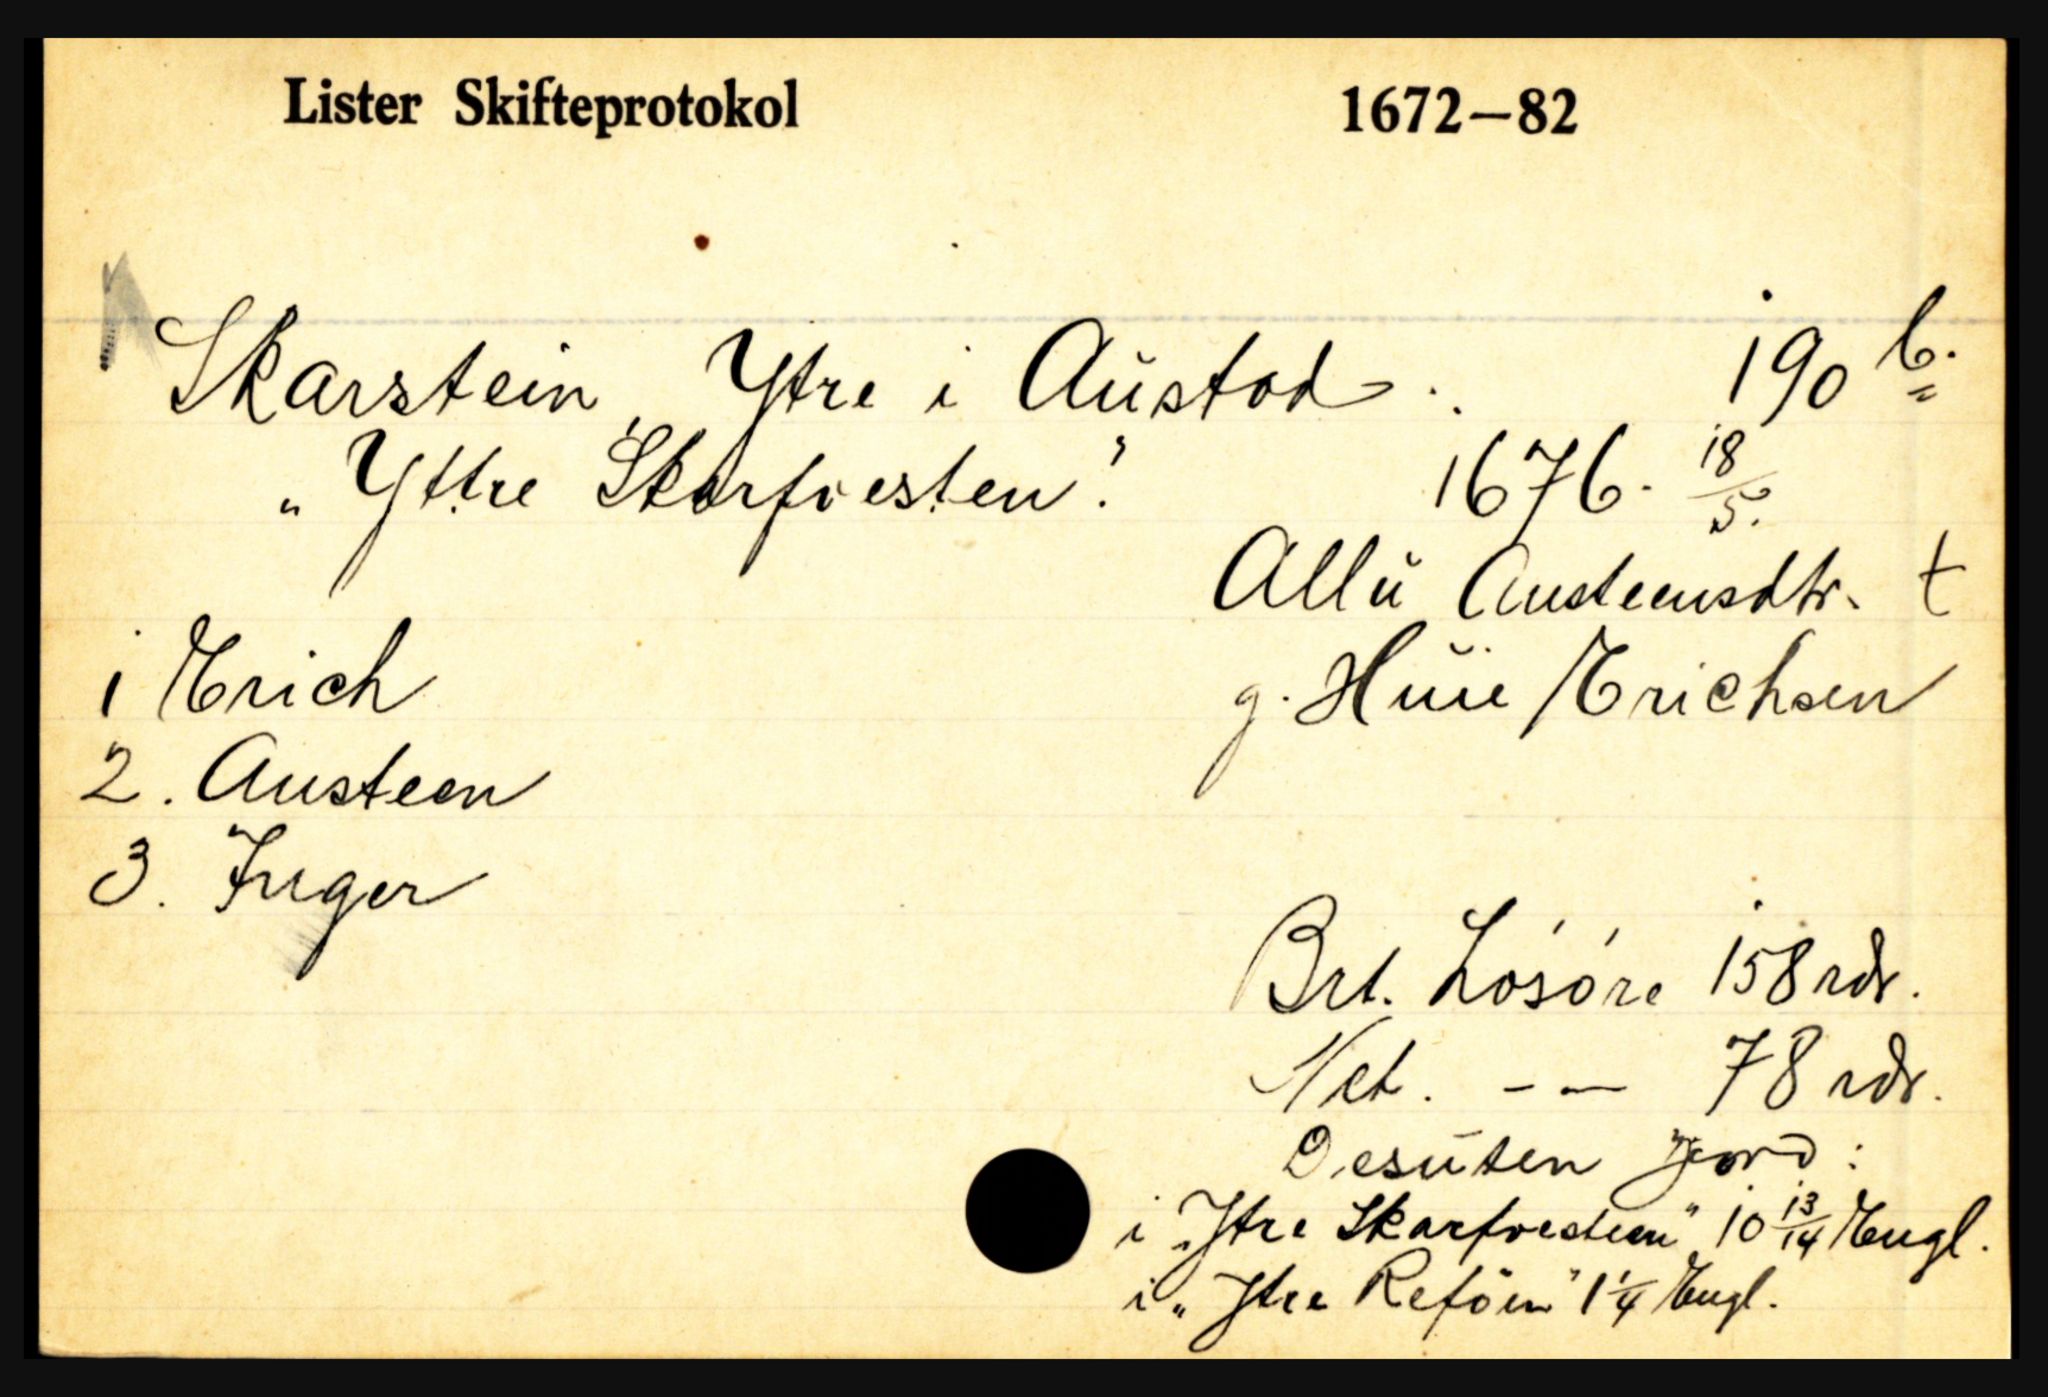 Lister Skifteprotokol 1672—82
Skarstein, Ytre i Aŭstad. 190 b.
„Yttre Skarfvesten." 1676. 18/5.
Allŭ Austeensdtr. †
1 Erich g. Hŭie Erichsen
2. Austeen
3. Inger
Brt. Lósóre 158 rdr.
Net. - — 78 rdr.
Desŭten jord:
i „Ytre Skarfvesteen" 10 13/14 Engl.
i „Ytre Reföen" 1 1/4 Engl.